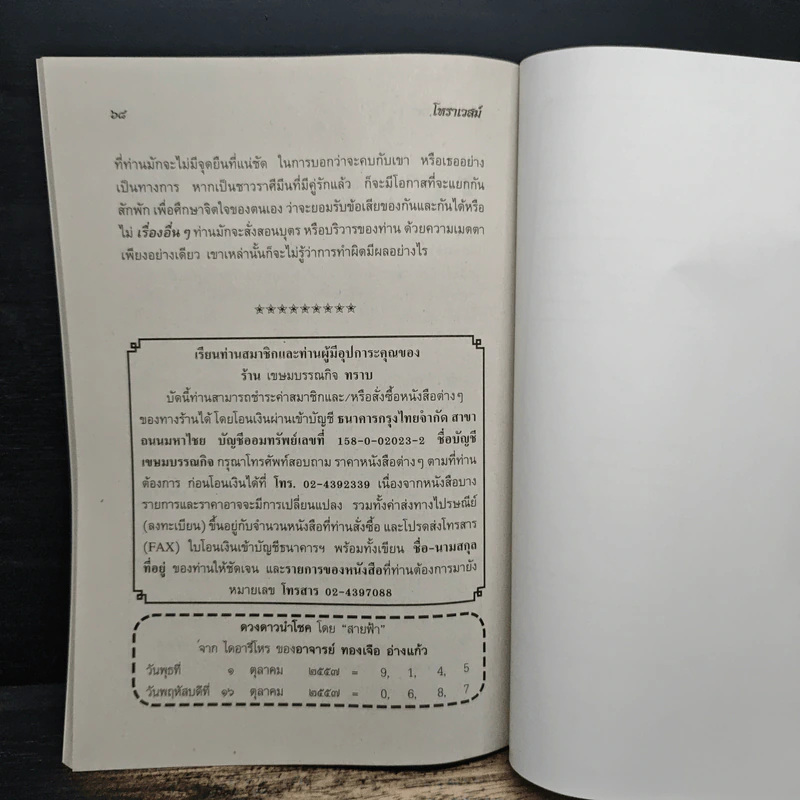 ๖๘ โหราเวสม์
ที่ท่านมักจะไม่มีจุดยืนที่แน่ชัด ในการบอกว่าจะคบกับเขา หรือเธออย่าง
เป็นทางการ หากเป็นชาวราศีมีนที่มีคู่รักแล้ว ก็จะมีโอกาสที่จะแยกกัน
สักพัก เพื่อศึกษาจิตใจของตนเอง ว่าจะยอมรับข้อเสียของกันและกันได้หรือ
ไม่ เรื่องอื่น ๆ ท่านมักจะสั่งสอนบุตร หรือบริวารของท่าน ด้วยความเมตตา
เพียงอย่างเดียว เขาเหล่านั้นก็จะไม่รู้ว่าการทำผิดมีผลอย่างไร
เรียนท่านสมาชิกและท่านผู้มีอุปการะคุณของ
ร้าน เขษมบรรณกิจ ทราบ
บัดนี้ท่านสามารถชำระค่าสมาชิกและ/หรือสั่งซื้อหนังสือต่างๆ
ของทางร้านได้ โดยโอนเงินผ่านเข้าบัญชี ธนาคารกรุงไทยจำกัด สาขา
ถนนมหาไชย บัญชีออมทรัพย์เลขที่ 158-0-02023-2 ชื่อบัญชี
เขษมบรรณกิจ กรุณาโทรศัพท์สอบถาม ราคาหนังสือต่างๆ ตามที่ท่าน
ต้องการ ก่อนโอนเงินได้ที่ โทร. 02-4392339 เนื่องจากหนังสือบาง
รายการและราคาอาจจะมีการเปลี่ยนแปลง รวมทั้งค่าส่งทางไปรษณีย์
(ลงทะเบียน) ขึ้นอยู่กับจำนวนหนังสือที่ท่านสั่งซื้อ และโปรดส่งโทรสาร
(FAX) ใบโอนเงินเข้าบัญชีธนาคารฯ พร้อมทั้งเขียน ชื่อ-นามสกุล
ที่อยู่ ของท่านให้ชัดเจน และรายการของหนังสือที่ท่านต้องการมายัง
หมายเลข โทรสาร 02-4397088
ดวงดาวนำโชค โดย "สายฟ้า"
จาก ไดอารี่โหร ของอาจารย์ ทองเจือ อ่างแก้ว
วันพุธที่ ๑ ตุลาคม ๒๕๕๗ = 9, 1, 4, 5
วันพฤหัสบดีที่ ๑๖ ตุลาคม ๒๕๕๗ = 0, 6, 8, 7